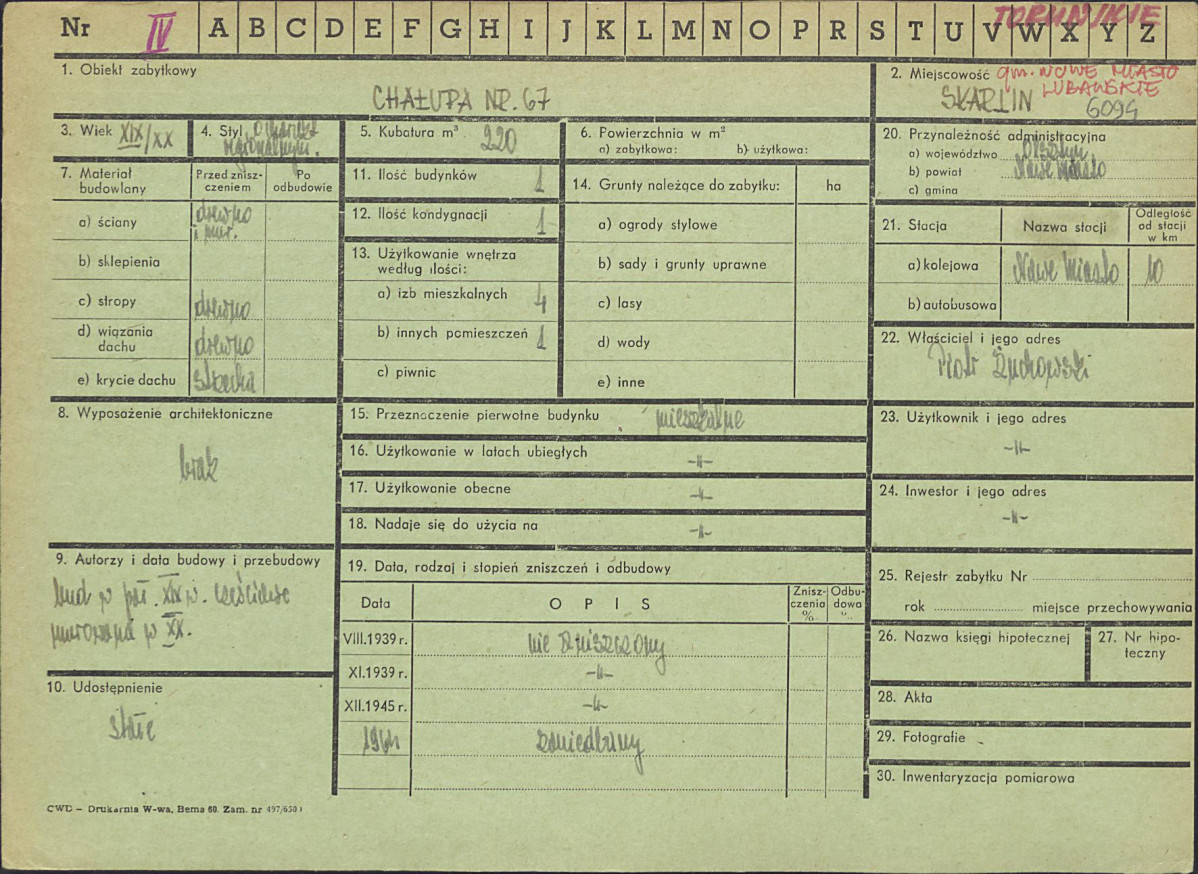 Nr IV A B C D E F G H I J K L M N O P R S T U V W X Y Z
TORUŃSKIE
1. Obiekt zabytkowy
CHAŁUPA NR. 67
2. Miejscowość gm. NOWE MIASTO
LUBAWSKIE
SKARLIN
6094
3. Wiek XIX/XX
4. Styl o charakt.
regionalnym.
5. Kubatura m³ 220
6. Powierzchnia w m²
a) zabytkowa: b) użytkowa:
7. Materiał budowlany
Przed znisz-
czeniem
Po
odbudowie
a) ściany drewno
i mur.
b) sklepienia
c) stropy drewno
d) wiązania
dachu drewno
e) krycie dachu strzecha
8. Wyposażenie architektoniczne
brak
9. Autorzy i data budowy i przebudowy
bud w poł. XIX w. częściowo
murowana w XX.
10. Udostępnienie
stałe
11. Ilość budynków 1
12. Ilość kondygnacji 1
13. Użytkowanie wnętrza
według ilości:
a) izb mieszkalnych 4
b) innych pomieszczeń 1
c) piwnic
14. Grunty należące do zabytku: ha
a) ogrody stylowe
b) sady i grunty uprawne
c) lasy
d) wody
e) inne
15. Przeznaczenie pierwotne budynku mieszkalne
16. Użytkowanie w latach ubiegłych -"-
17. Użytkowanie obecne -"-
18. Nadaje się do użycia na -"-
19. Data, rodzaj i stopień zniszczeń i odbudowy
Data OPIS Znisz-
czenia
% Odbu-
dowa
%
VIII.1939 r. nie zniszczony
XI.1939 r. -"-
XII.1945 r. -"-
1964 zaniedbany
20. Przynależność administracyjna
a) województwo Olsztyn
b) powiat Nowe Miasto
c) gmina
21. Stacja Nazwa stacji Odległość
od stacji
w km
a) kolejowa Nowe Miasto 10
b) autobusowa
22. Właściciel i jego adres
Piotr Żuchowski
23. Użytkownik i jego adres
-"-
24. Inwestor i jego adres
-"-
25. Rejestr zabytku Nr
rok miejsce przechowywania
26. Nazwa księgi hipotecznej
27. Nr hipo-
teczny
28. Akta
29. Fotografie
30. Inwentaryzacja pomiarowa
CWD – Drukarnia W-wa, Bema 60. Zam. nr 497/650